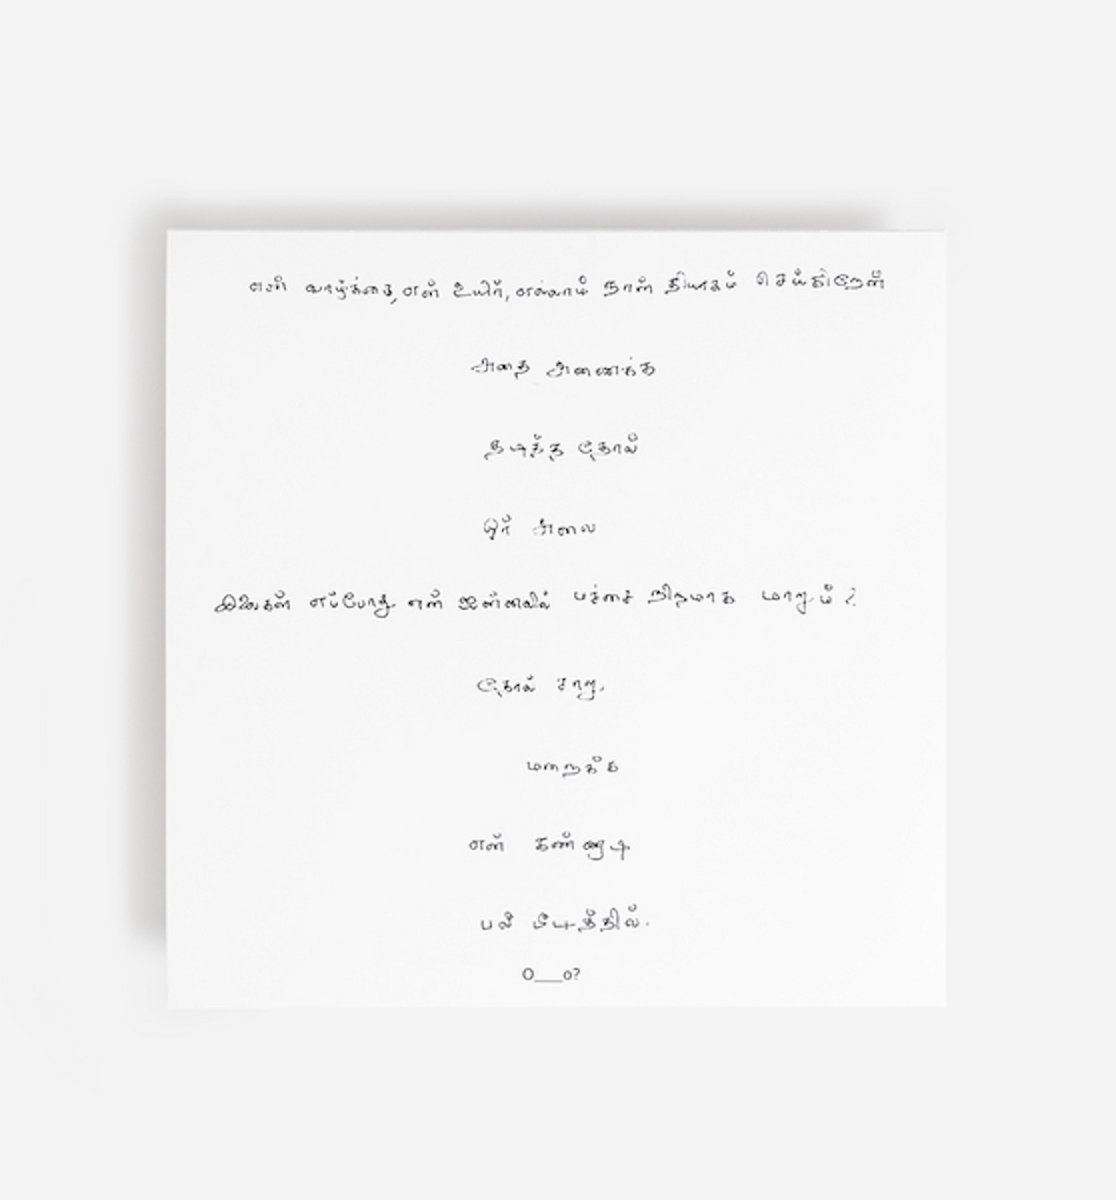 என் வாழ்க்கை, என் உயிர், எல்லாம் நான் தியாகம் செய்கிறேன்
அதை அணைக்க
தடித்த தோல்
ஓர் அலை
இலைகள் எப்போது என் ஜன்னலில் பச்சை நிறமாக மாறும் ?
தோல் சாறு
மறைக்க
என் கண்ணாடி
பலி பீடத்தில்.
O___o?